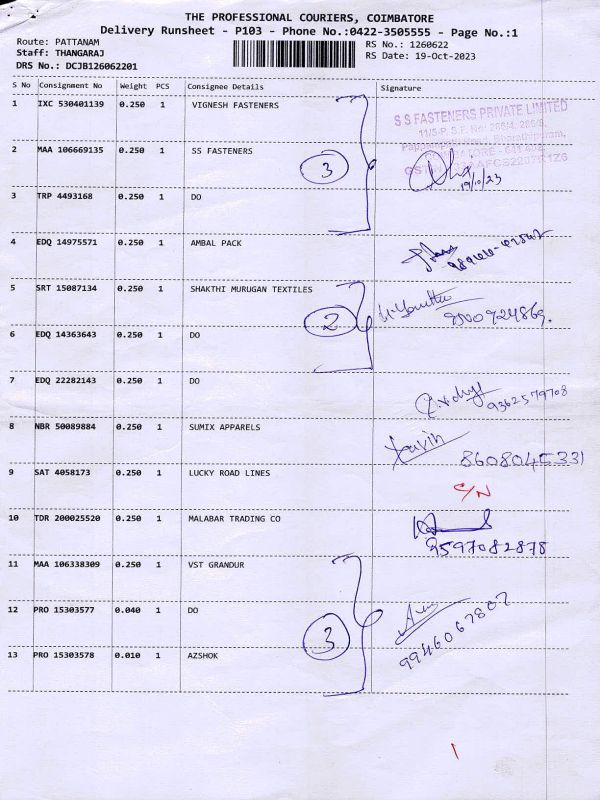 THE PROFESSIONAL COURIERS, COIMBATORE
Delivery Runsheet - P103 - Phone No.:0422-3505555 - Page No.:1
Route: PATTANAM
RS No.: 1260622
Staff: THANGARAJ
RS Date: 19-Oct-2023
DRS No.: DCJB126062201
S No Consignment No Weight PCS Consignee Details Signature
1 IXC 530401139 0.250 1 VIGNESH FASTENERS
S S FASTENERS PRIVATE LIMITED
2 MAA 106669135 0.250 1 SS FASTENERS
3
19/10/23
3 TRP 4493168 0.250 1 DO
4 EDQ 14975571 0.250 1 AMBAL PACK
5 SRT 15087134 0.250 1 SHAKTHI MURUGAN TEXTILES
2
6 EDQ 14363643 0.250 1 DO
7 EDQ 22282143 0.250 1 DO
9362579708
8 NBR 50089884 0.250 1 SUMIX APPARELS
8608045331
9 SAT 4058173 0.250 1 LUCKY ROAD LINES
C/N
10 TDR 200025520 0.250 1 MALABAR TRADING CO
9597082878
11 MAA 106338309 0.250 1 VST GRANDUR
12 PRO 15303577 0.040 1 DO
3
9946067807
13 PRO 15303578 0.010 1 AZSHOK